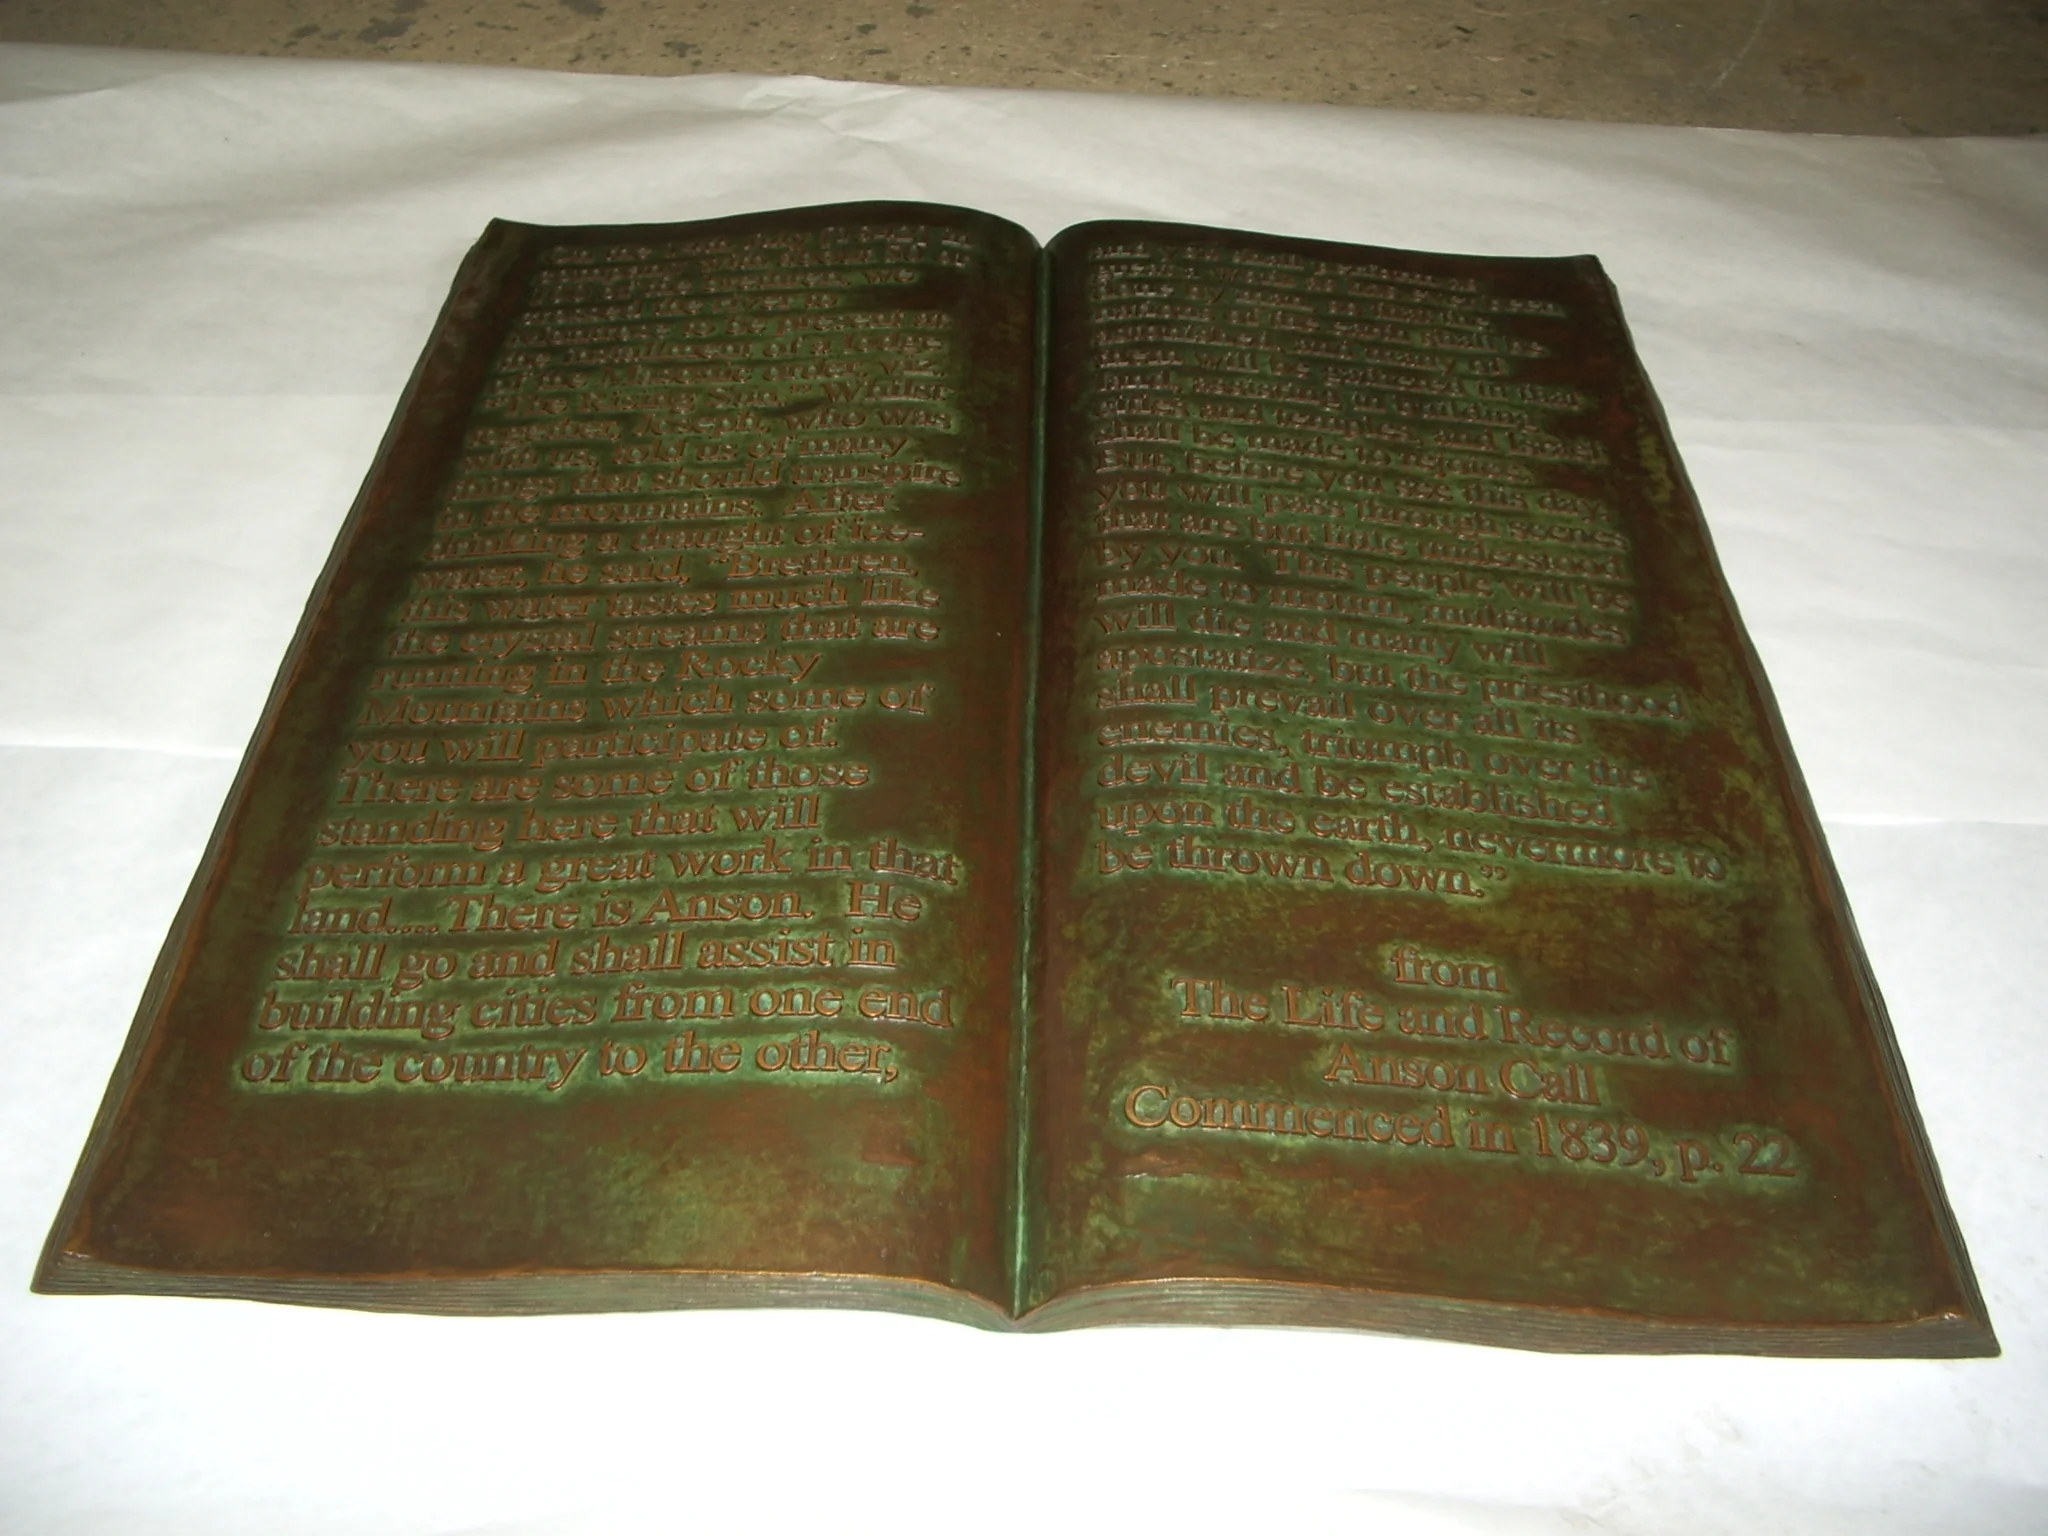 company with about 50 or
100 of the brethren, we
crossed the river to
Montrose to be present at
the installment of a lodge
of the Masonic order, viz.
"The Rising Sun." Whilst
together, Joseph, who was
with us, told us of many
things that should transpire
in the mountains. After
drinking a draught of ice-
water, he said, "Brethren,
this water tastes much like
the crystal streams that are
running in the Rocky
Mountains which some of
you will participate of.
There are some of those
standing here that will
perform a great work in that
land.... There is Anson. He
shall go and shall assist in
building cities from one end
of the country to the other,
and you shall perform as
great a work as has ever been
done by man, so that the
nations of the earth shall be
astonished and many of
them will be gathered in that
land, assisting in building
cities and temples, and Israel
shall be made to rejoice.
But, before you see this day,
you will pass through scenes
that are but little understood
by you. This people will be
made to mourn, multitudes
will die and many will
apostatize, but the priesthood
shall prevail over all its
enemies, triumph over the
devil and be established
upon the earth, nevermore to
be thrown down."
from
The Life and Record of
Anson Call
Commenced in 1839, p. 22